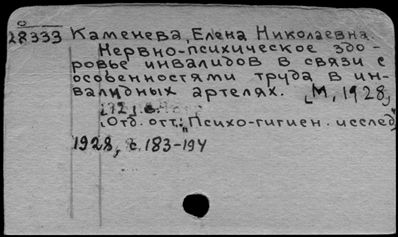 28333 Каменева, Елена Николаевна.
Нервно-психическое здо-
ровье инвалидов в связи с
особенностями труда в ин-
валидных артелях. М, 1928,
12 с.
Отд. отт.: "Психо-гигиен. исслед"
1928, с. 183-194